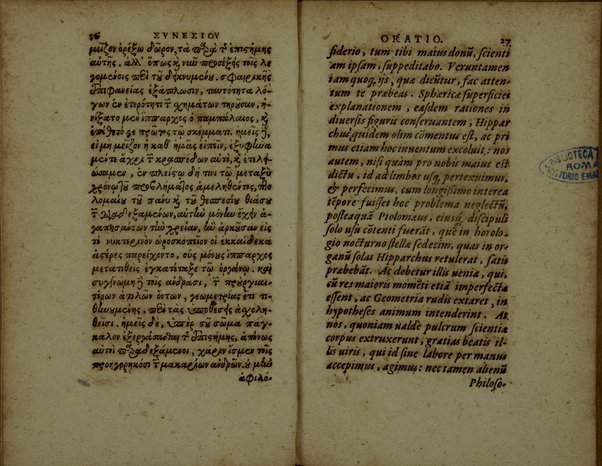 26 ΣΥΝΕΣΙΟΥ
μεῖζον ὀρέξω δῶρον, τὰ πρῶτα τ̃ ἐπιστήμης
αὐτῆς. ἀλλ' ὅπως καὶ νῦ προσέξῃς τοῖς λε-
γομένοις περὶ τοῦ δεικνυμένου. σφαιρικῆς
ἐπιφανείας ἐξάπλωσιν, ταυτότητα λό-
γων ἐν ἑτερότητι τῶν σχημάτων τηροῦσαν, ᾐ-
νίξατο μὲν ἵππαρχος ὁ παμπάλαιος, καὶ
ἐπέθετό γε πρῶτος τῷ σκέμματι. ἡμεῖς δὲ,
εἰ μὴ μεῖζον ἢ καθ' ἡμᾶς εἰπεῖν, ἐξυφήνα-
μέν τε ἄχρι τῶν κρασπέδων αὐτὸ, καὶ ἐτελεώ-
σαμεν, ἐν πλείστῳ δὴ τῷ μεταξὺ
χρόνῳ τοῦ προβλήματος ἀμεληθέντος, πτο-
λομαίου τοῦ πάνυ καὶ τοῦ θεσπεσίου θιάσου
τῶν διαδεξαμένων, αὐτὴν μόνην ἔχειν ἀ-
γαπησάντων τὴν χρείαν, ἣν ἀρκοῦσαν εἰς
τὸ νυκτερινὸν ὡροσκοπεῖον οἱ ἑκκαίδεκα
ἀστέρες παρείχοντο, οὓς μόνους ἵππαρχος
μετατιθεὶς ἐγκατέταξε τῷ ὀργάνῳ. καὶ
συγγνώμη γε τοῖς ἀνδράσι, εἰ τῶν προυργιαι-
τέρων ἀτελῶν ὄντων, γεωμετρίας ἔτι τι-
θηνουμένης, περὶ τὰς ὑποθέσεις ἀσχολη-
θεῖσι. ἡμεῖς δὲ, ὑπὲρ τοῦ σῶμα πάγ-
καλον ἐξεργάσασθαι τῆς ἐπιστήμης, ἀπόνως
αὐτὸ παραδεξάμενοι, χάριν ἴσμεν τοῖς
προηγορηκόσι τῶν μακαρίων ἀνδρῶν. οὐ μὴν
ἀφιλό-
ORATIO. 27
siderio, tum tibi maius donũ, scienti
am ipsam, suppeditabo. Veruntamen
iam quoq; ijs, quæ dicũtur, fac atten-
tum te præbeas. Sphæricæ superficiei
explanationem, easdem rationes in
diuersis figuris conseruantem, Hippar
chus quidem olim cõmentus est, ac pri
mus etiam hoc inuentum excoluit: nos
autem, nisi quàm pro nobis maius est
dictu, id ad limbos usq; pertexuimus,
& perfecimus, cum longißimo interea
tẽpore fuisset hoc problema neglectũ,
posteaquã Ptolomæus, eiusq; discipuli
solo usu cõtenti fuerãt, quẽ in horolo-
gio nocturno stellæ sedecim, quas in or
ganũ solas Hipparchus retulerat, satis
præbebãt. Ac debetur illis uenia, qui,
cũ res maioris momẽti etiã imperfectæ
essent, ac Geometria rudis extaret, in
hypotheses animum intenderint. At
nos, quoniam ualde pulcrum scientiæ
corpus extruxerunt, gratias beatis il-
lis uiris, qui id sine labore per manus
accepimus, agimus: nec tamen alienũ
Philoso-
BIBLIOTECA
ROMA
VITTORIO EMAN